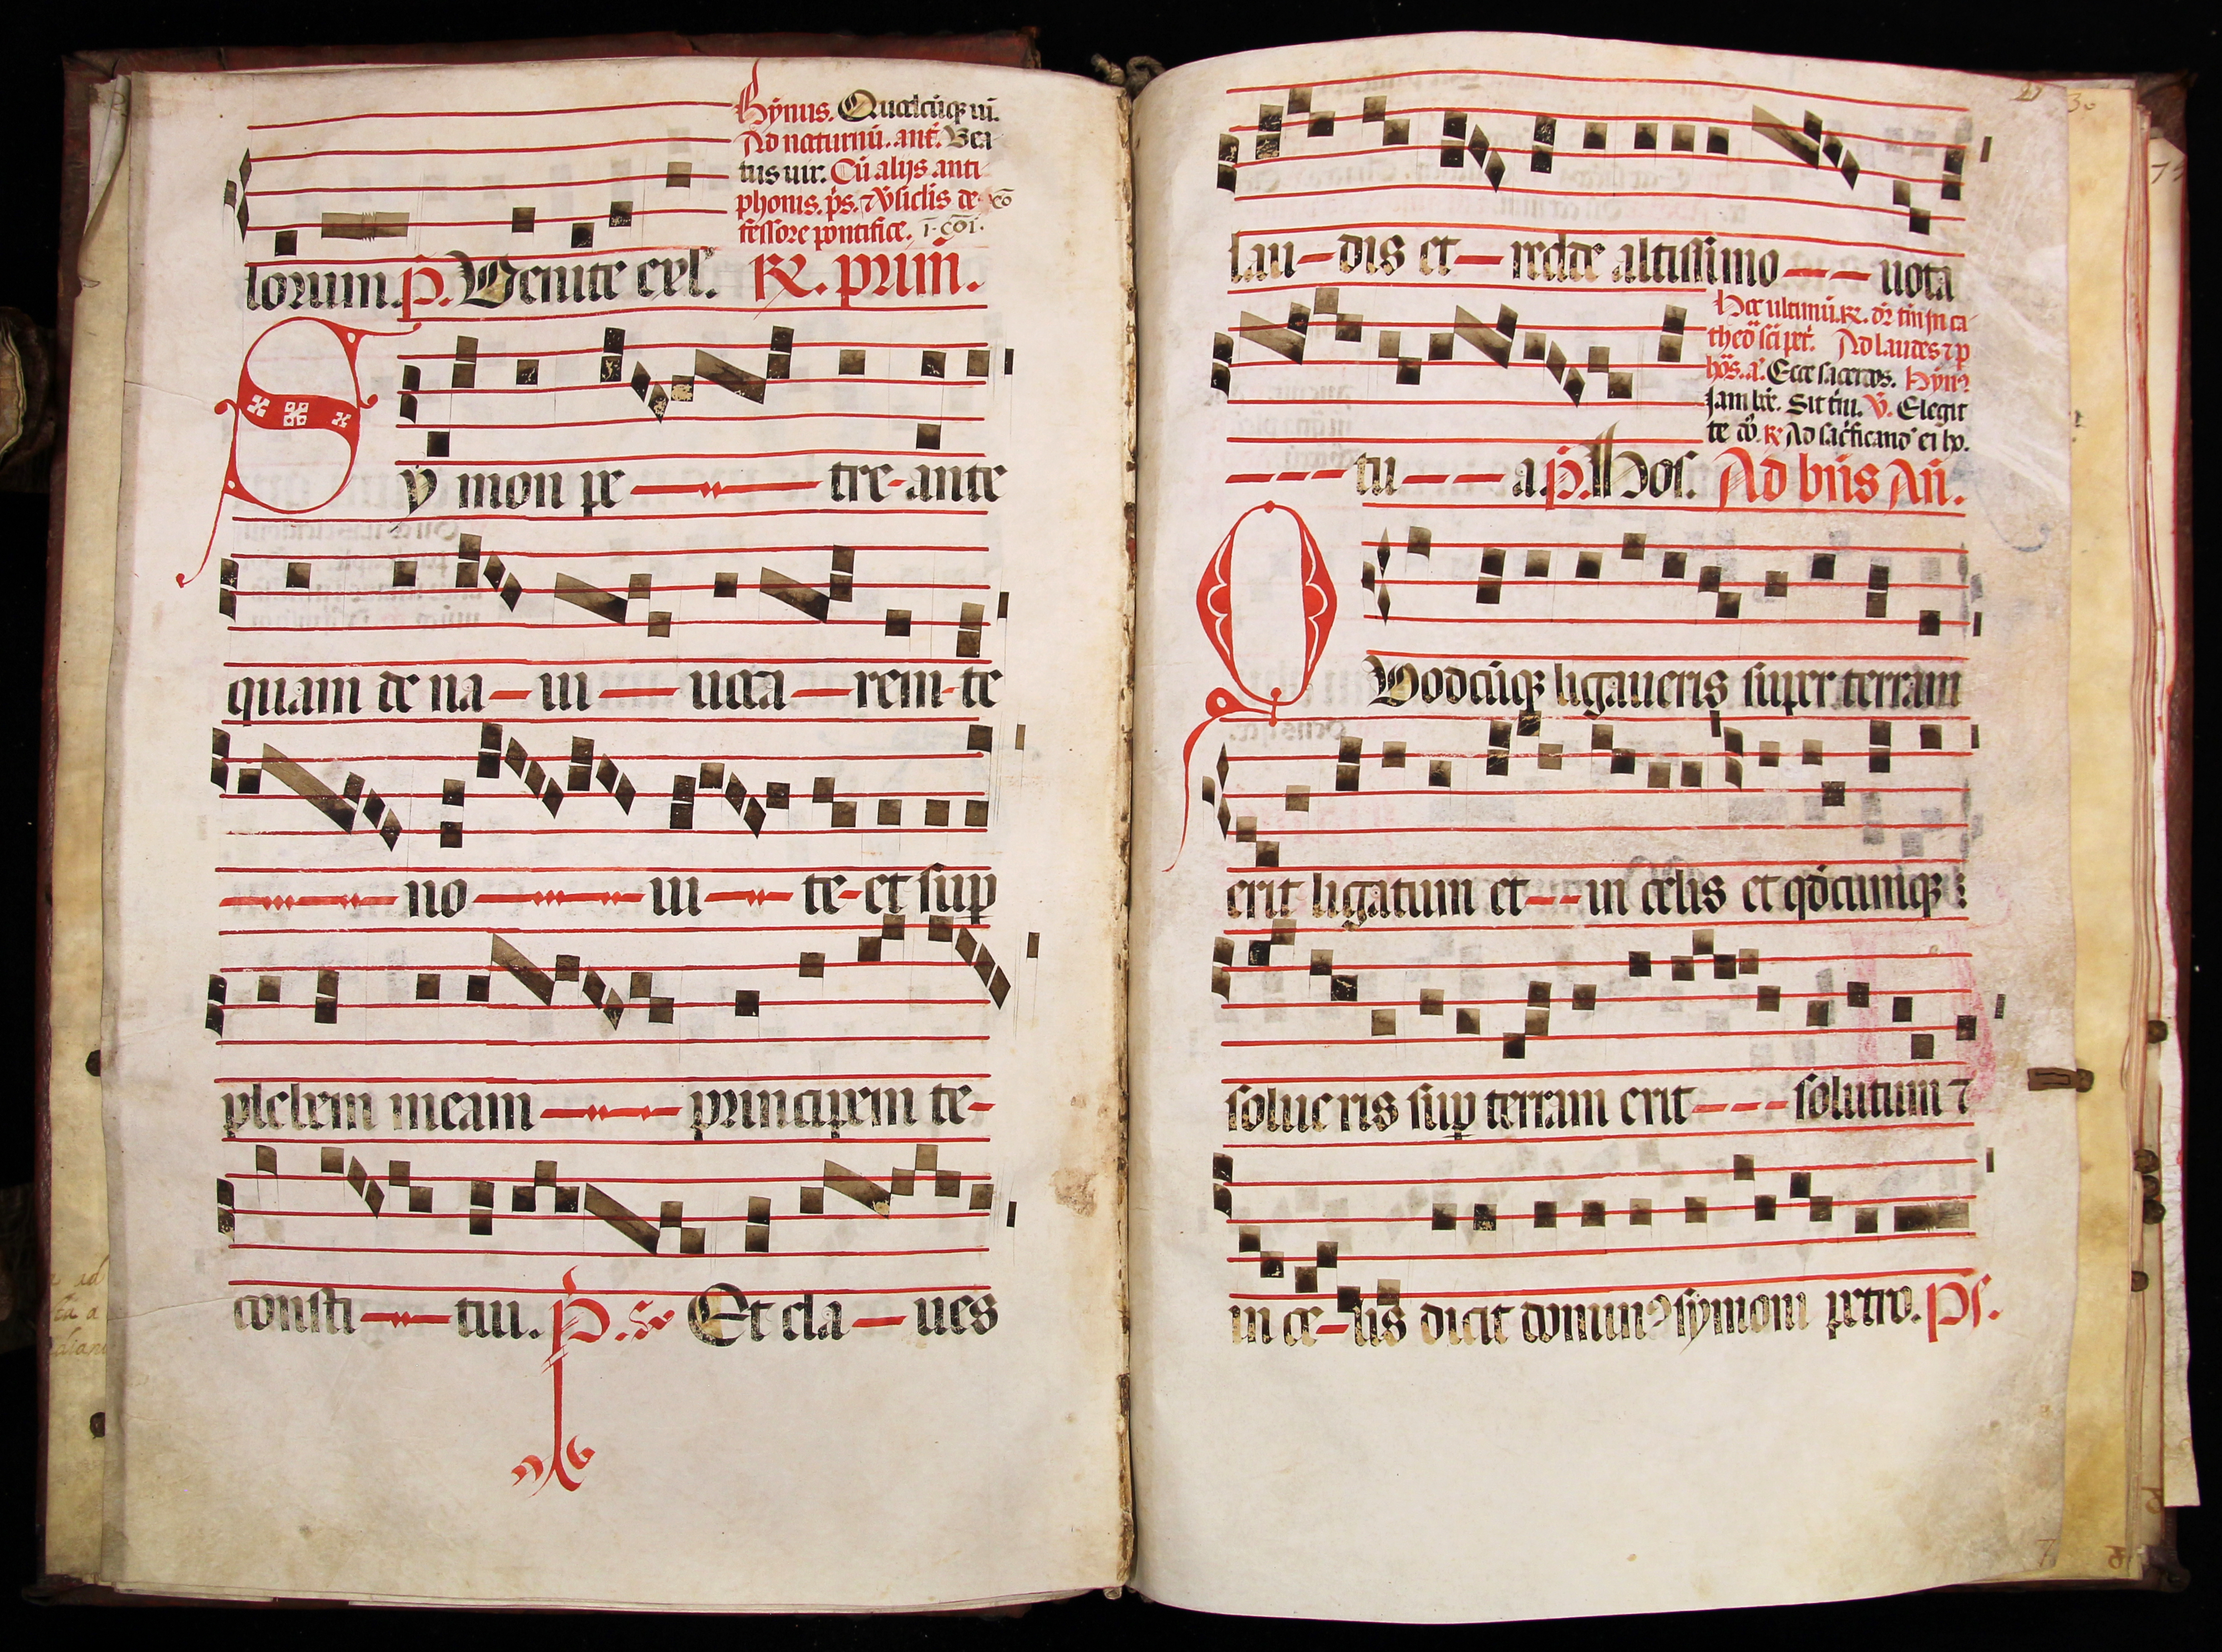 Hymnus. Quodcūqꝫ uī.
Ad nocturnū. ant̄. Bea
tus uir. Cū alijs anti
phonis. p̄s. ⁊ v̄siclis de. cō
fessore pontifice. ī. cōi.
lorum. P̄. Venite exl̄. R̷. prim̄.
Sy mon pe tre ante
quam de na ui uoca rem te
no ui te et suꝑ
plebem meam principem te
consti tui. P̄. Et cla ues
lau dis et redde altissimo uota
Hoc ultimū. R̷. dr̄ tm̄ in ca
thed̄ sc̄i pet̄. Ad laudes ⁊ p
hōs. a. Ecce sacerdos. Hȳn
Jam bō. Sit tm̄. V̄. Elegit
te dō. R̷ Ad sac̄ficand ei ho.
tu a. p̄. Hos. Ad bn̄s An̄.
QVodcūqꝫ ligaueris super terram
erit ligatum et in celis et qdcumqꝫ
solue ris suꝑ terram erit solutum ⁊
in ce lis dicit dominꝰ symoni petro. Ps.